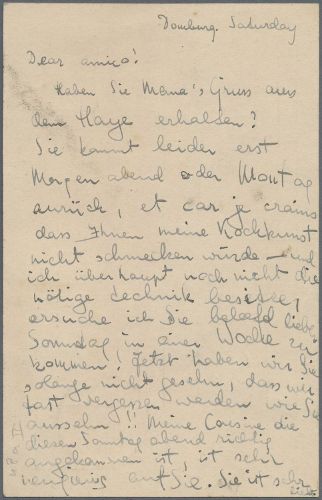 Domburg. Saturday
Dear amico!
Haben Sie Mama's Gruss aus
dem Haye erhalten?
Sie kommt leider erst
Morgen abend oder Montag
zurück, et car je crains
dass Ihnen meine Kochkunst
nicht schmecken würde – und
ich überhaupt noch nicht die
nötige technik besitze,
ersuche ich Sie liebe
Sonntag in einer Woche zu
kommen! Jetzt haben wir Sie
solange nicht gesehn, dass wir
fast vergessen werden wie Sie
aussehn!! Meine Cousine die
diesen Sonntag abend
angekommen ist, ist schr
neugierig auf Sie. Sie ist sehr